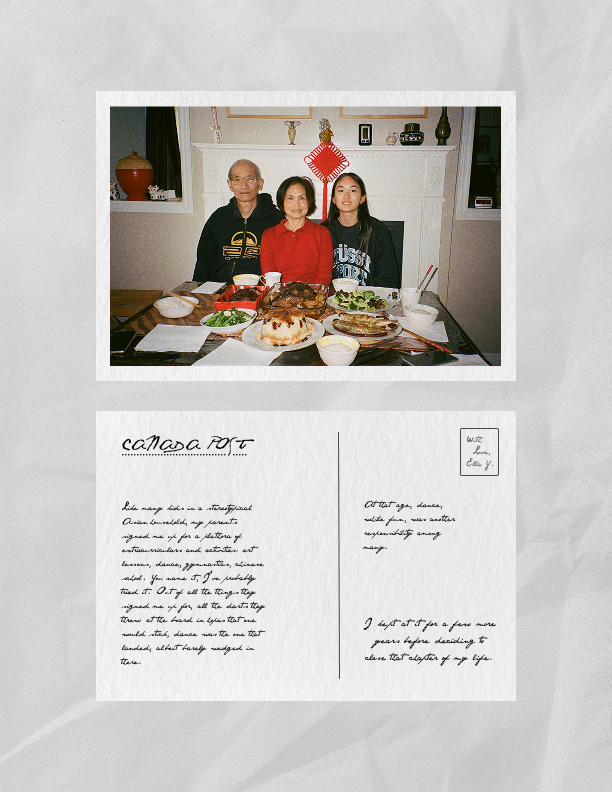 STÜSSY
SPORT
CANADA POST
With
Love,
Ella Y.
Like many kids in a stereotypical
Asian household, my parents
signed me up for a plethora of
extracurriculars and activities: art
lessons, dance, gymnastics, chinese
school. You name it, I've probably
tried it. Out of all the things they
signed me up for, all the darts they
threw at the board in hopes that one
would stick, dance was the one that
landed, albeit barely wedged in
there.
At that age, dance,
while fun, was another
responsibility among
many.
I kept at it for a few more
years before deciding to
close that chapter of my life.